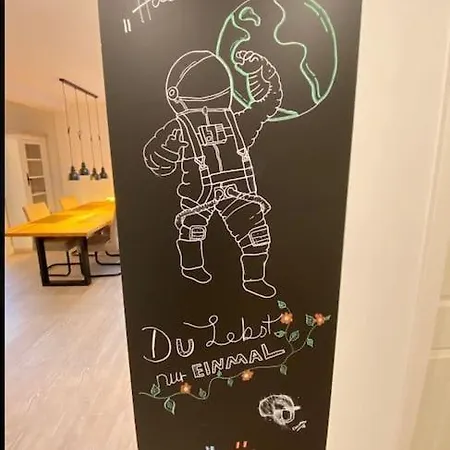 Du Lebst
nur EINMAL